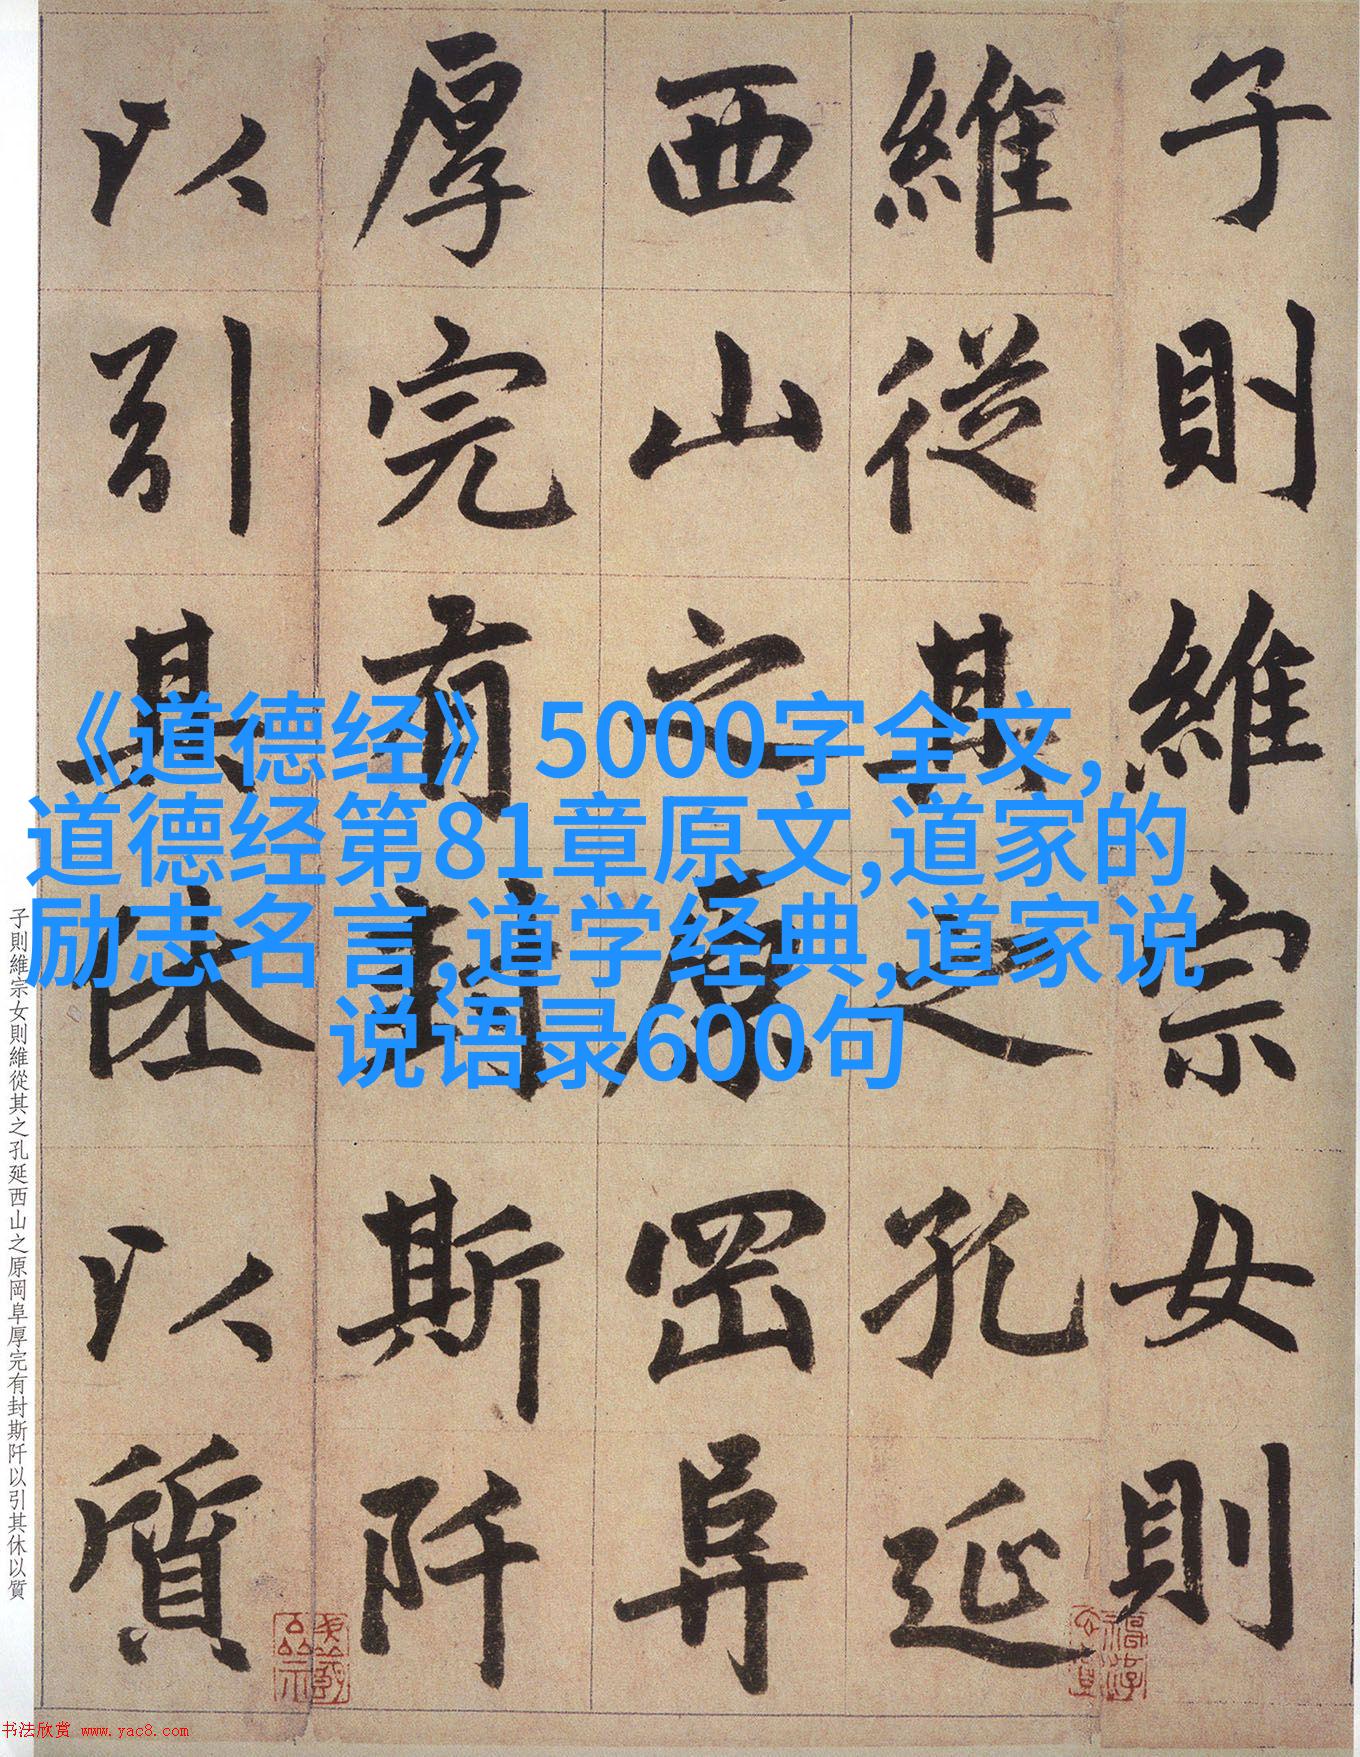 子則維宗女則
維從其之孔延
西山之原岡阜
厚完有封斯阡
以引其休以質
《道德经》5000字全文,
道德经第81章原文,道家的
励志名言,道学经典,道家说
说语录600句
子則維宗女則維從其之孔延西山之原岡阜厚完有封斯阡以引其休以質
书法欣赏 www.yac8.com